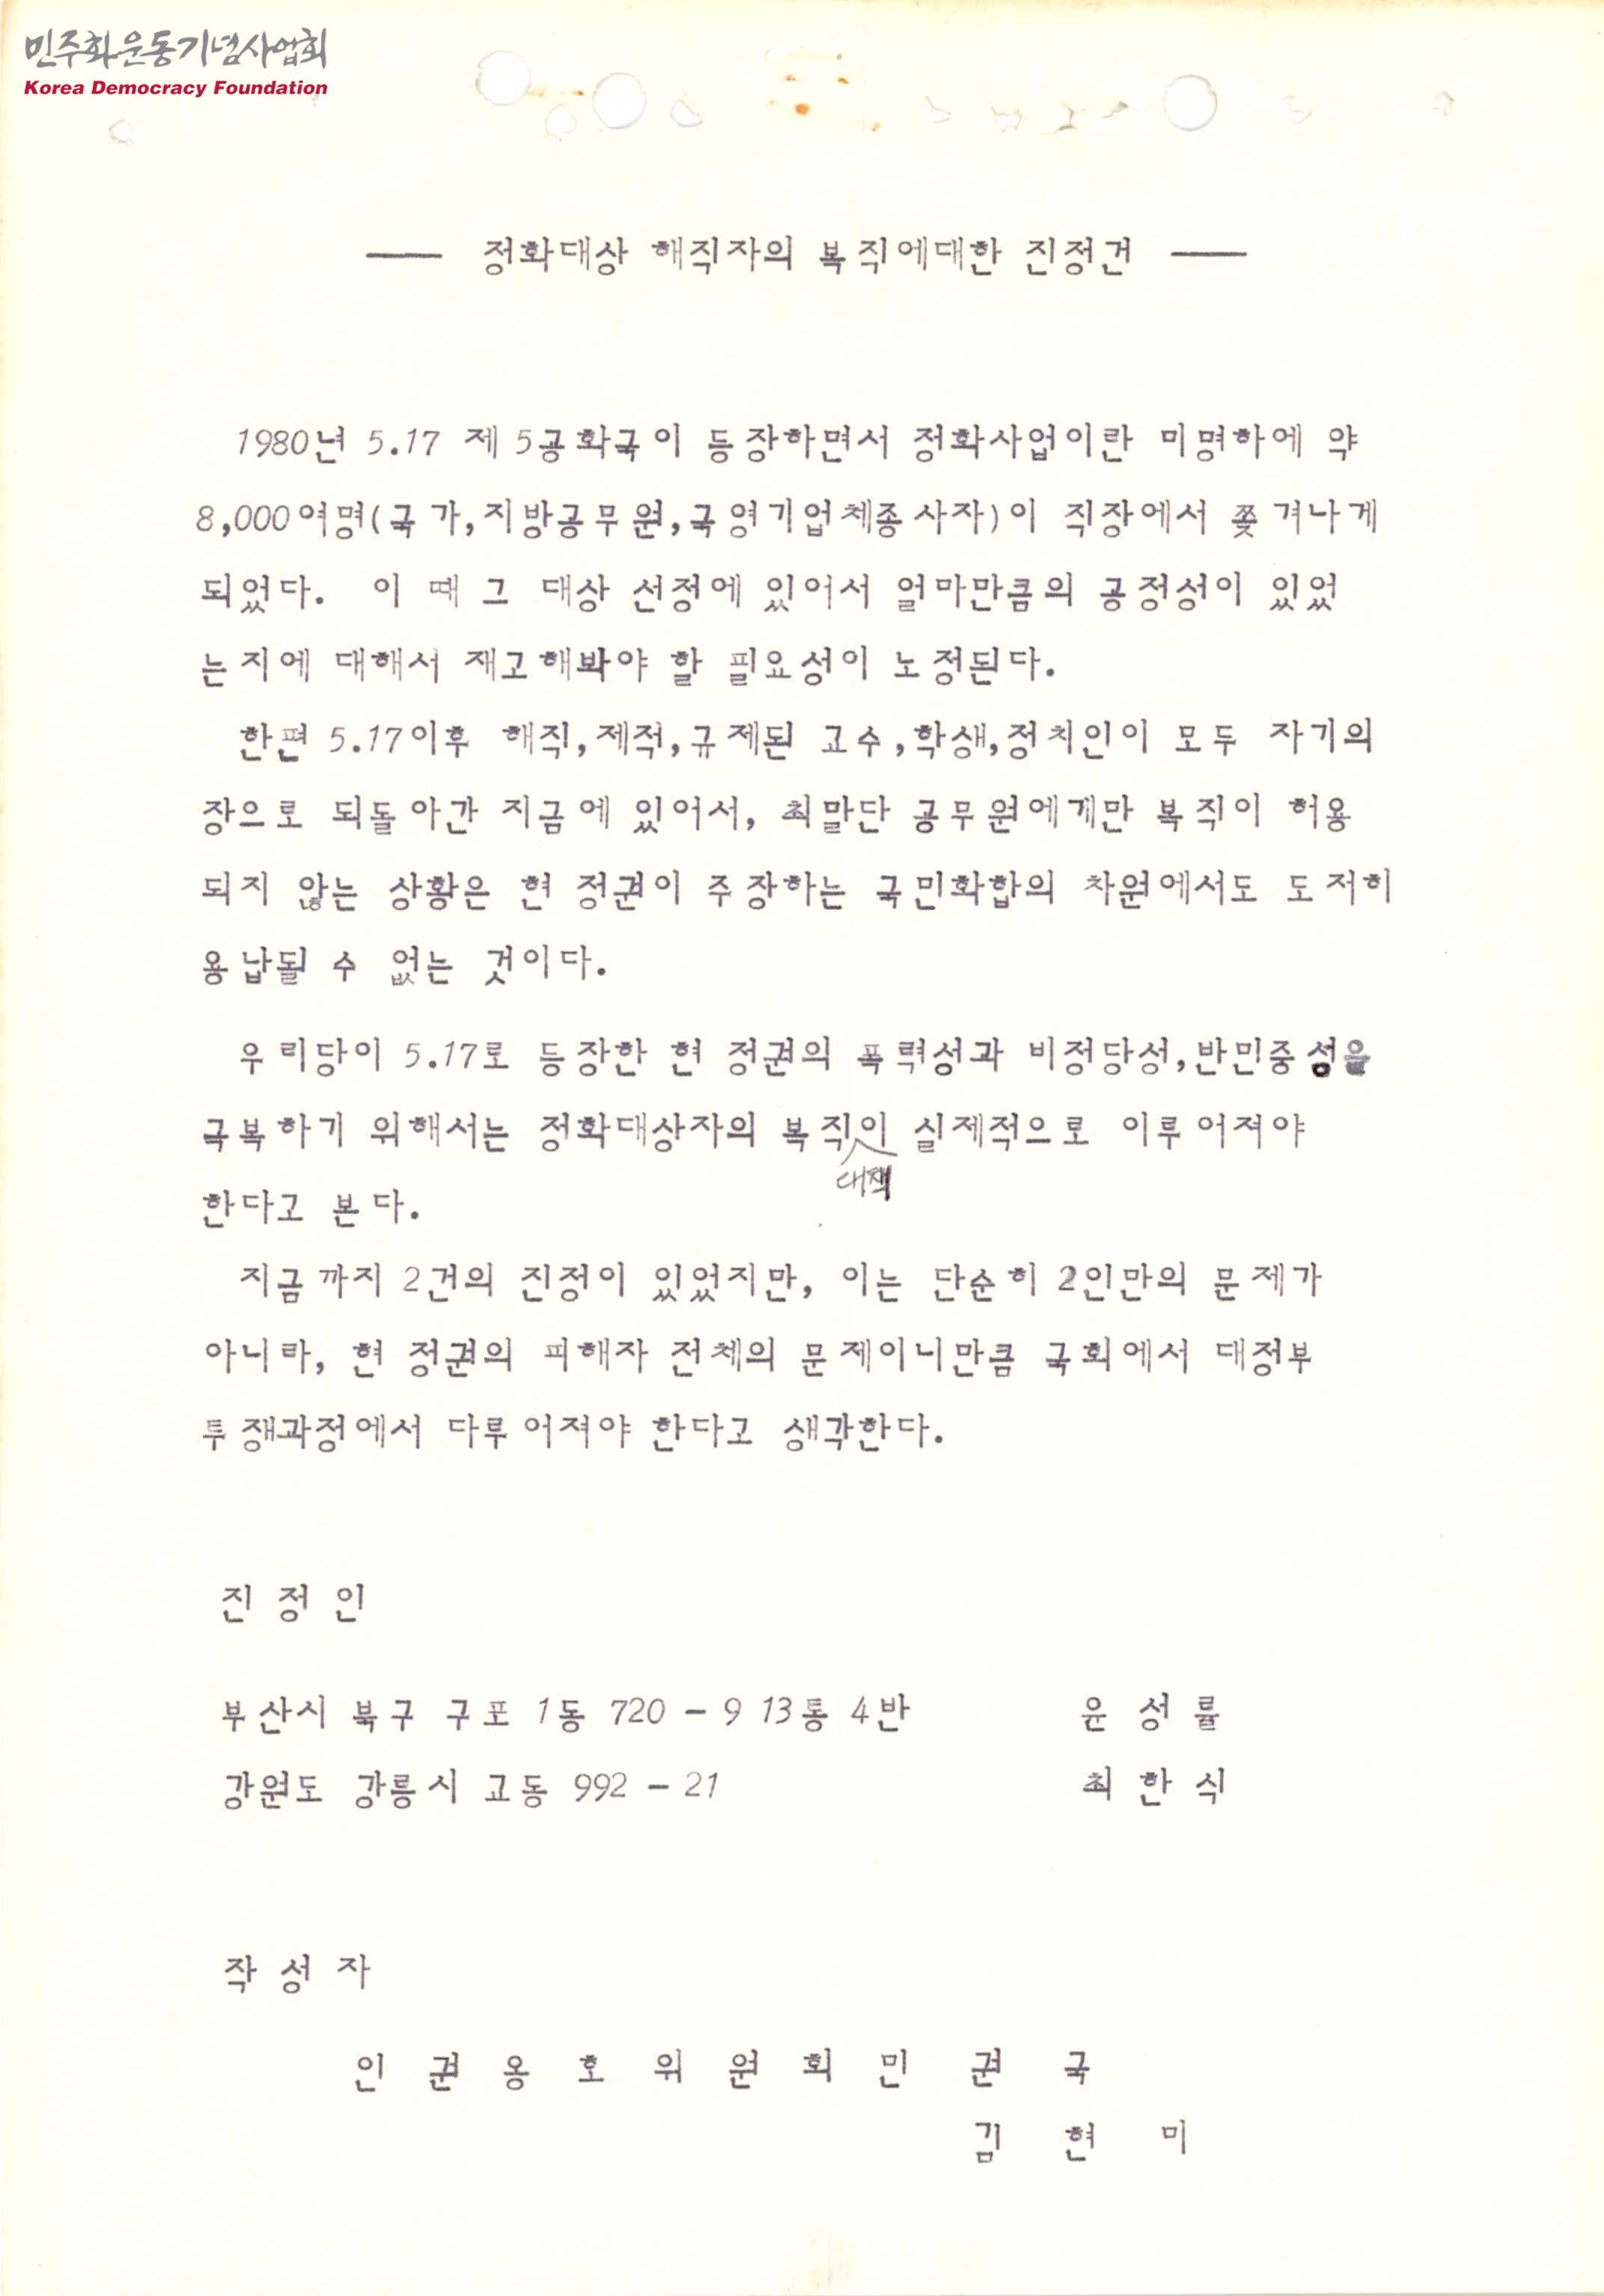 민주화운동기념사업회
Korea Democracy Foundation
── 정화대상 해직자의 복직에대한 진정건 ──
1980년 5.17 제5공화국이 등장하면서 정화사업이란 미명하에 약
8,000여명(국가,지방공무원,국영기업체종사자)이 직장에서 쫓겨나게
되었다. 이 때 그 대상 선정에 있어서 얼마만큼의 공정성이 있었
는지에 대해서 재고해봐야 할 필요성이 노정된다.
한편 5.17이후 해직,제적,규제된 교수,학생,정치인이 모두 자기의
장으로 되돌아간 지금에 있어서, 최말단 공무원에게만 복직이 허용
되지 않는 상황은 현 정권이 주장하는 국민화합의 차원에서도 도저히
용납될 수 없는 것이다.
우리당이 5.17로 등장한 현 정권의 폭력성과 비정당성,반민중성을
극복하기 위해서는 정화대상자의 복직이 실제적으로 이루어져야
대책
한다고 본다.
지금까지 2건의 진정이 있었지만, 이는 단순히 2인만의 문제가
아니라, 현 정권의 피해자 전체의 문제이니만큼 국회에서 대정부
투쟁과정에서 다루어져야 한다고 생각한다.
진 정 인
부산시 북구 구포 1동 720 - 9 13통 4반 윤 성 률
강원도 강릉시 교동 992 - 21 최 한 식
작 성 자
인 권 옹 호 위 원 회 민 권 국
김 현 미